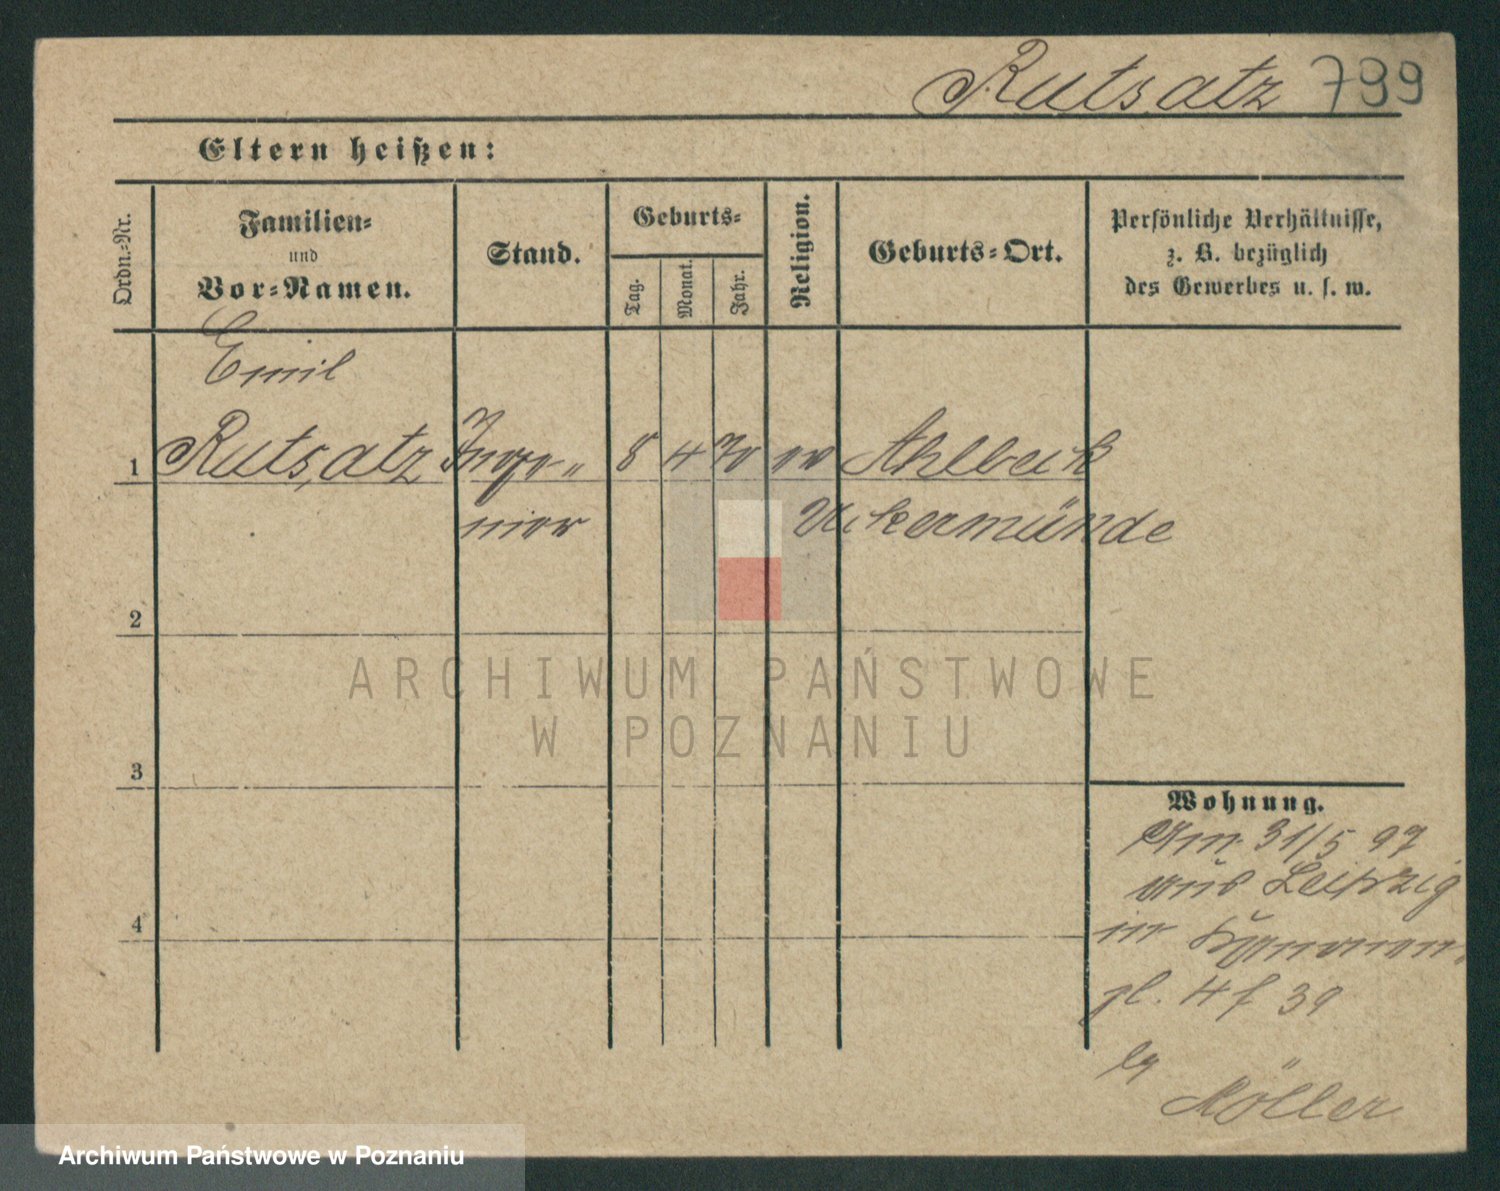 Rutsatz 799
Eltern heißen:
Ordn.-Nr.
Familien-
und
Vor-Namen.
Stand.
Geburts-
Tag.
Monat.
Jahr.
Religion.
Geburts-Ort.
Persönliche Verhältnisse,
z. B. bezüglich
des Gewerbes u. s. w.
Emil
1 Rutsatz Inge- 8 4 70 ev Ahlbeck
nieur Uckermünde
2
3
4
Wohnung.
31/5 97
aus Leipzig
in
pl. 4 f 39
by
Möller
ARCHIWUM PAŃSTWOWE
W POZNANIU
Archiwum Państwowe w Poznaniu